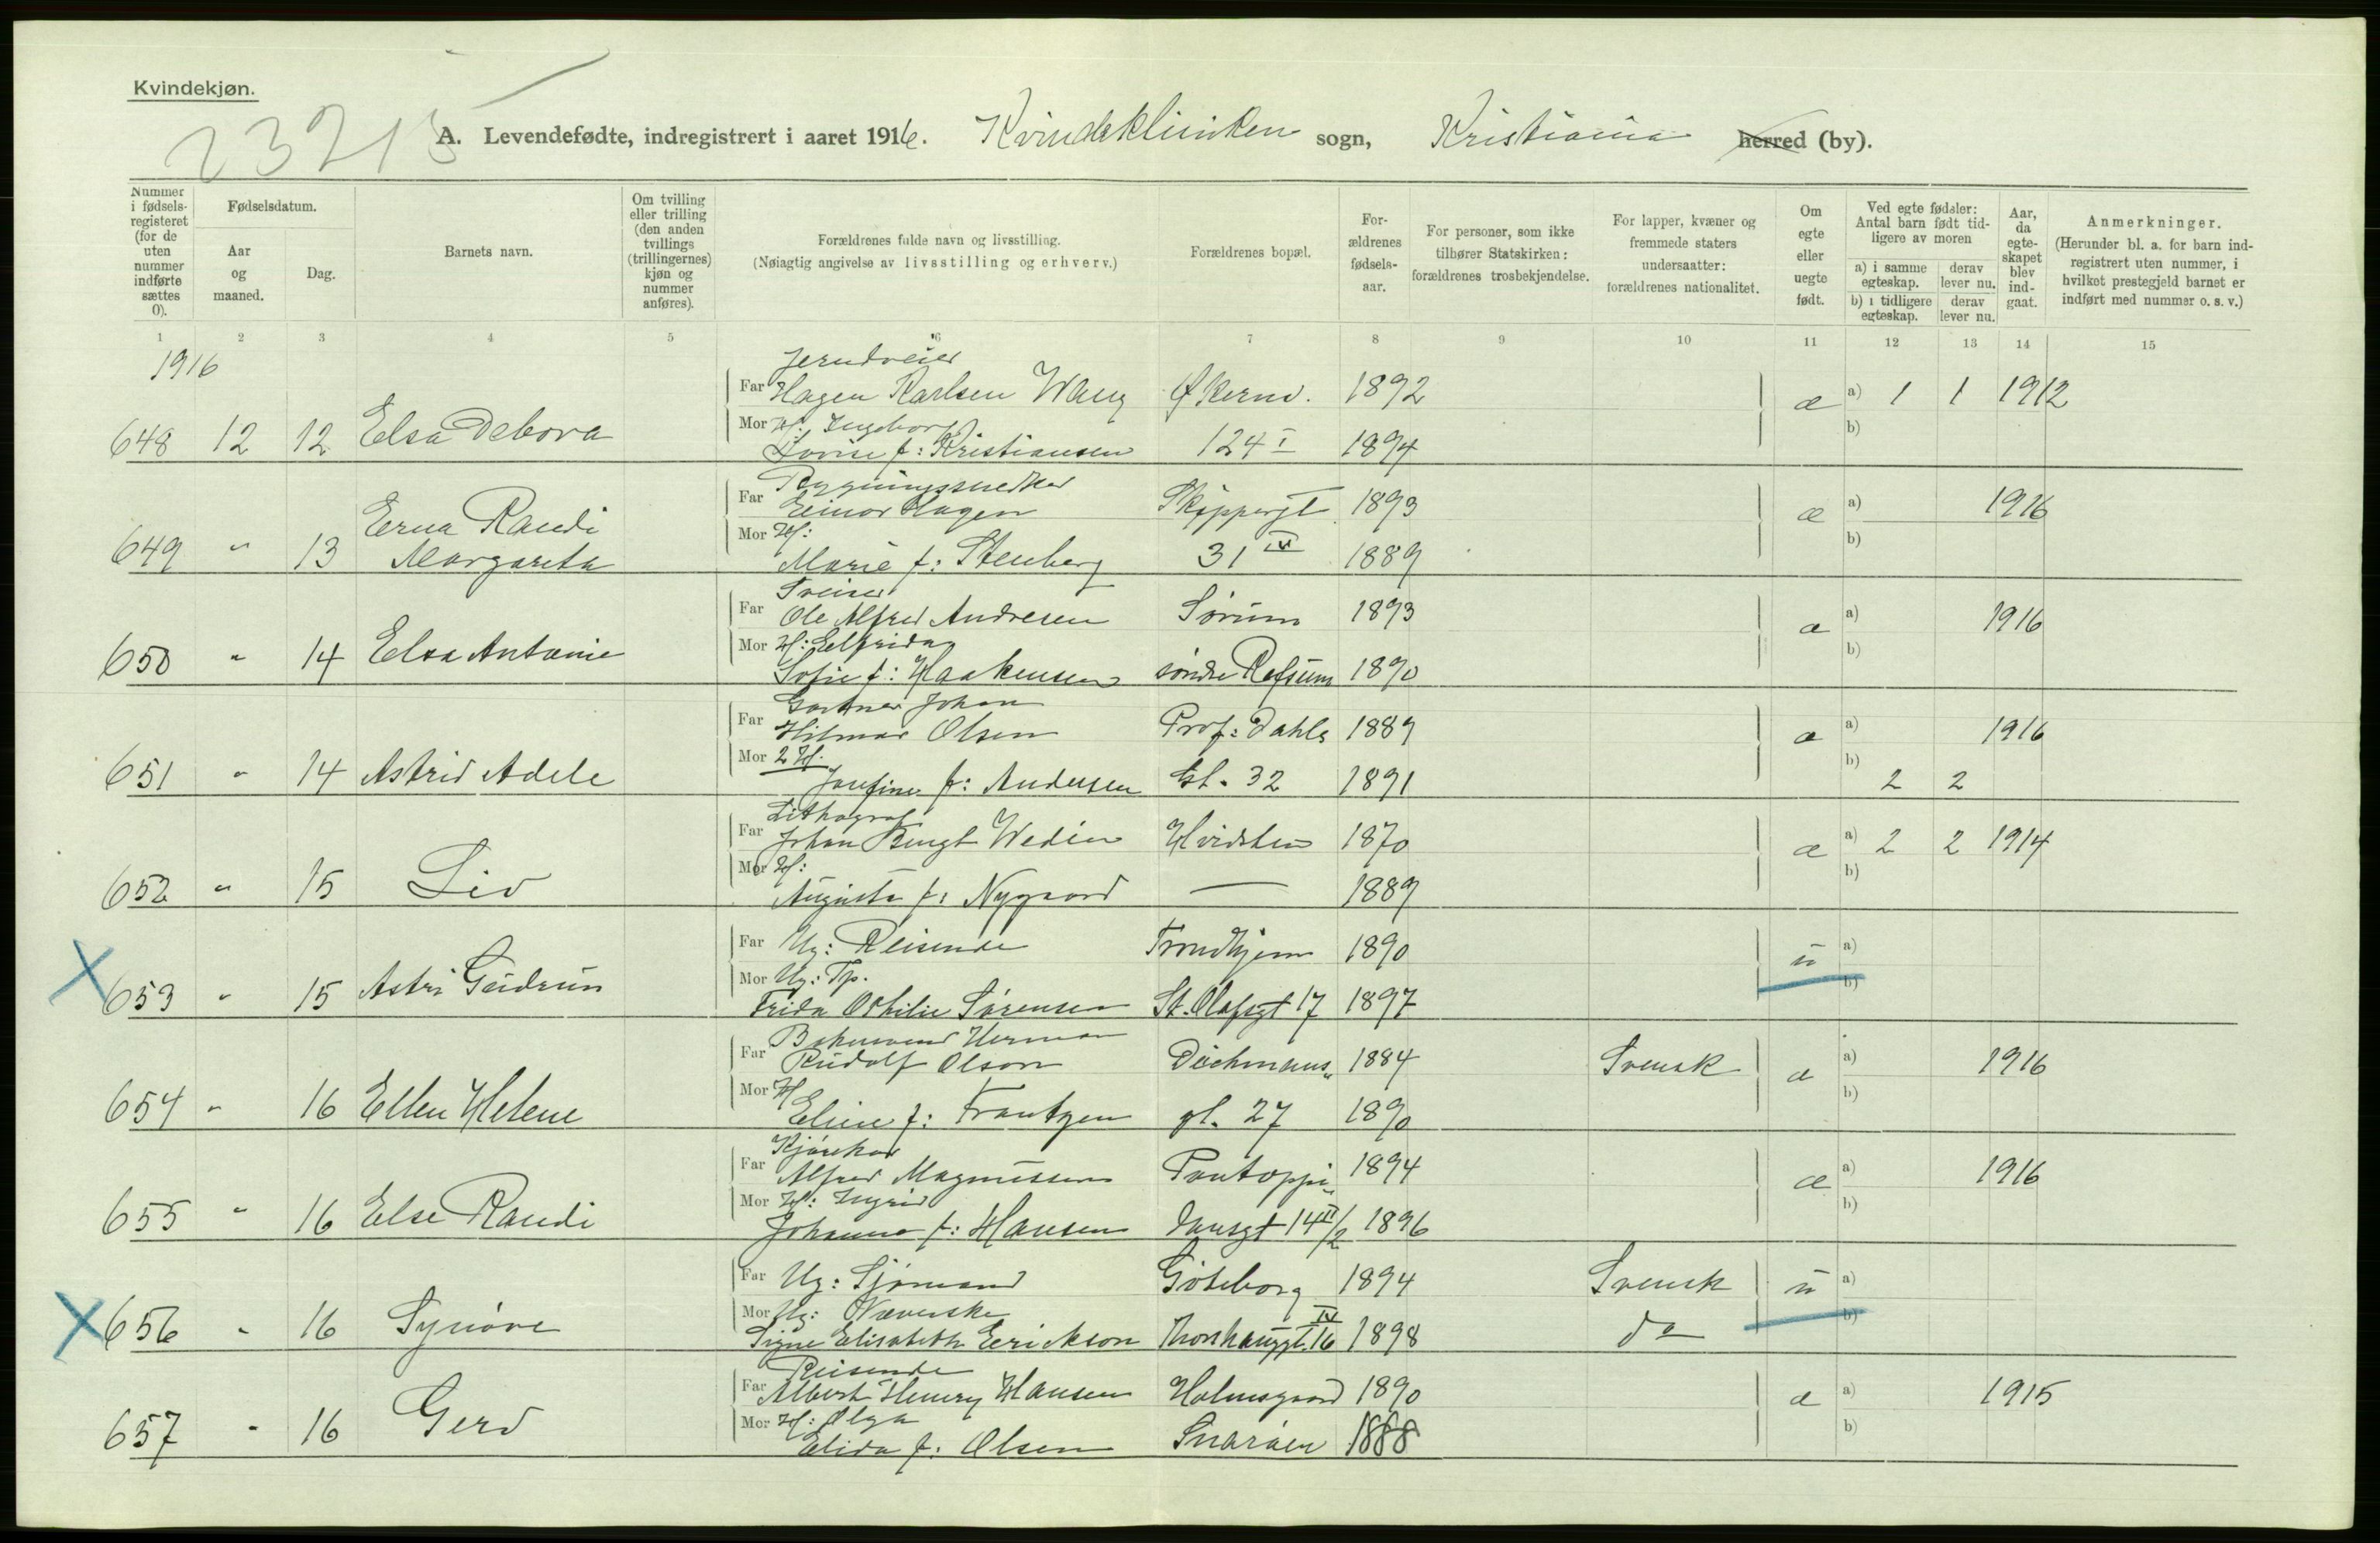 Kvindekjøn.
23215
A. Levendefødte, indregistrert i aaret 1916. Kvindeklinikken sogn, Kristiania herred (by).
Nummer i fødsels-registeret (for de uten nummer indførte sættes 0).
Fødselsdatum.
Aar og maaned.
Dag.
Barnets navn.
Om tvilling eller trilling (den anden tvillings (trillingernes) kjøn og nummer anføres).
Forældrenes fulde navn og livsstilling.
(Nøiagtig angivelse av livsstilling og erhverv.)
Forældrenes bopæl.
For-ældrenes fødsels-aar.
For personer, som ikke tilhører Statskirken: forældrenes trosbekjendelse.
For lapper, kvæner og fremmede staters undersaatter: forældrenes nationalitet.
Om egte eller uegte født.
Ved egte fødsler: Antal barn født tid-ligere av moren
a) i samme egteskap.
derav lever nu.
b) i tidligere egteskap.
derav lever nu.
Aar, da egte-skapet blev ind-gaat.
Anmerkninger.
(Herunder bl. a. for barn ind-registrert uten nummer, i hvilket prestegjeld barnet er indført med nummer o. s. v.)
1 2 3 4 5 6 7 8 9 10 11 12 13 14 15
1916
Far Hagen Karlsen Wang Økernv. 1892 æ a) 1 1 1912
648 12 12 Elsa Debora
Mor H: Ingeborg b)
Lovise f: Kristiansen 124 I 1894
Bygningssnedker
Far Einar Hagen Skippergt 1893 æ a) 1916
649 " 13 Erna Randi
Margareta
Mor H: b)
Marie f: Stenberg 31 IV 1889
Sveiser
Far Ole Alfred Andresen Sørum 1893 æ a) 1916
650 " 14 Elsa Antonie
Mor H: Elfrida b)
Sofie f: Haakensen søndre Refsum 1890
Gartner Johan
Far Hilmar Olsen Prof: Dahls 1889 æ a) 1916
651 " 14 Astrid Adele
Mor 2 H. b) 2 2
Josefine f: Andersen Gt. 32 1891
Lithograf
Far Johan Bengt Wedin Hvidsten 1870 æ a) 2 2 1914
652 " 15 Liv
Mor H: b)
Augusta f: Nygaard — 1889
Far Ug: Reisende Trondhjem 1890 u a)
653 " 15 Astri Gudrun
Mor Ug: Tp. b)
Frida Othilie Sørensen St. Olafsgt 17 1897
Bokmand Herman
Far Rudolf Olson Deichmans" 1884 Svensk æ a) 1916
654 " 16 Ellen Helene
Mor H b)
Eline f: Frantzen gt. 27 1890
Kjørekar
Far Alfred Magnussen Pontoppi" 1894 æ a) 1916
655 " 16 Else Randi
Mor H: Ingrid b)
Johanne f: Hansen dansgt 14 II/2 1896
Far Ug: Sjømand Göteborg 1894 Svensk u a)
656 " 16 Synøve
Mor Ug: Væverske b)
Signe Elisabeth Erickson Thorshauggt. 16 IV 1898 do
Reisende
Far Albert Henry Hansen Holmsgaard 1890 æ a) 1915
657 " 16 Gerd
Mor H: Olga b)
Elida f: Olsen Snarøen 1888